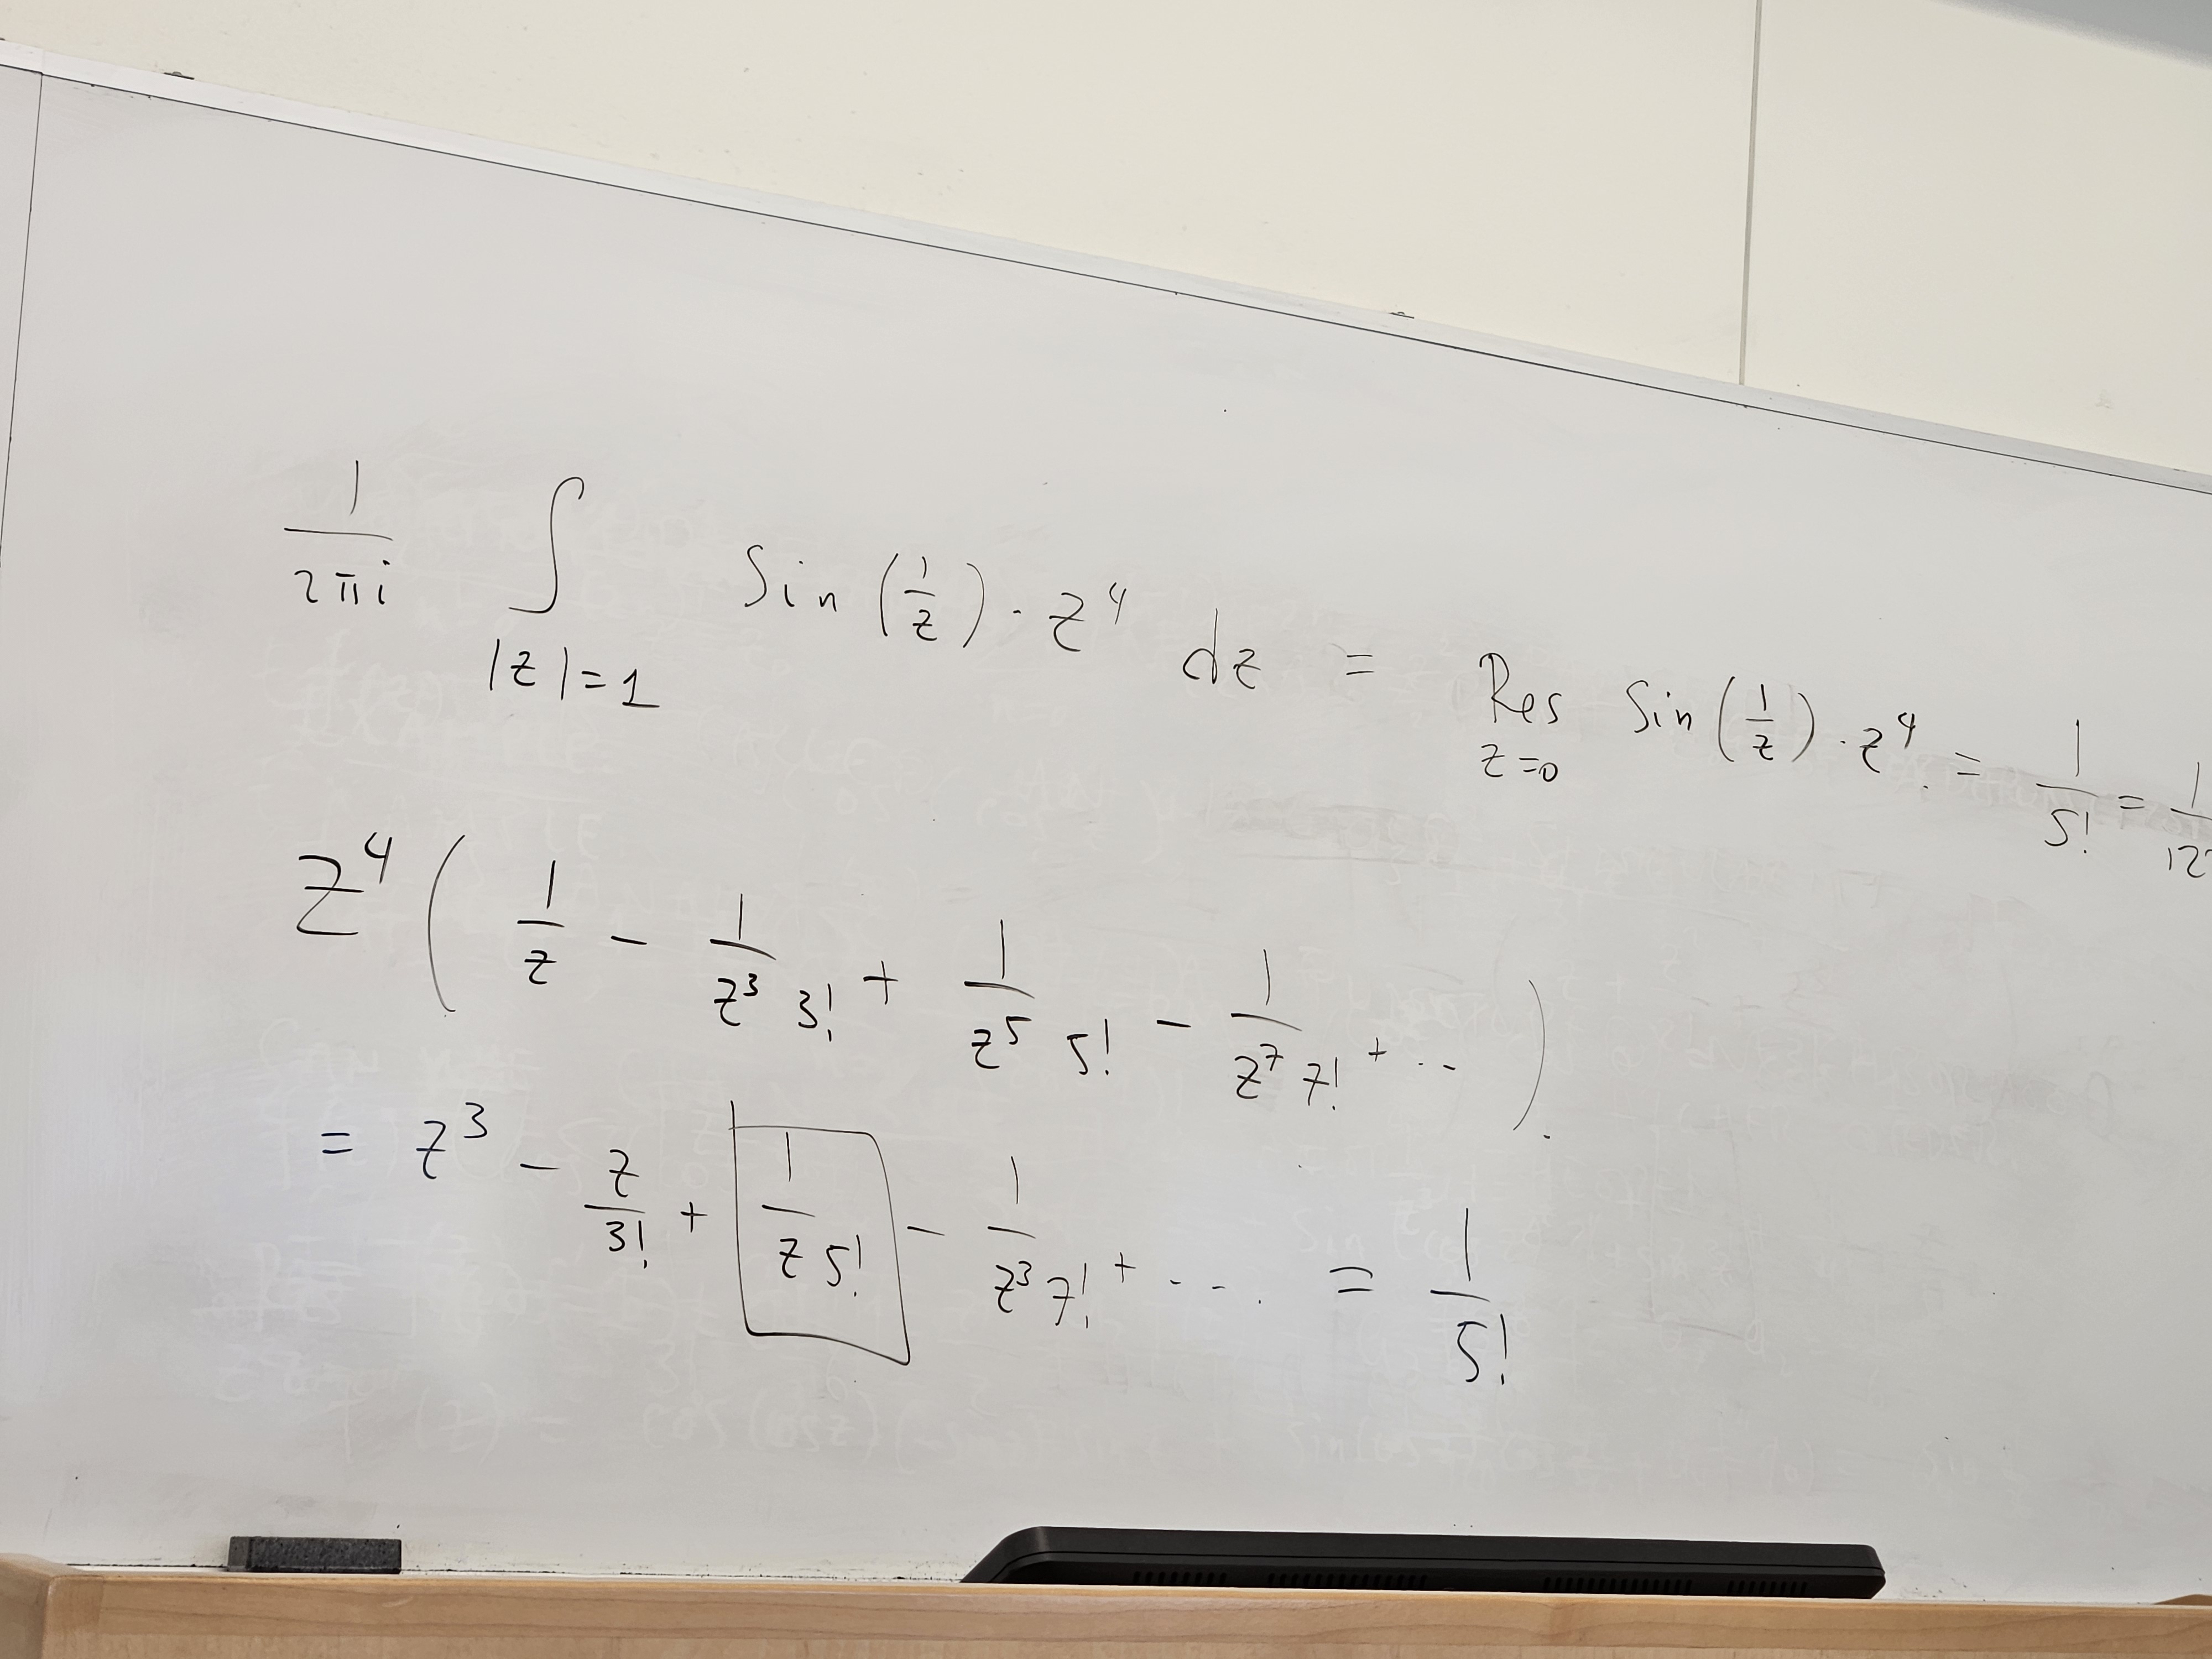 1/(2πi) ∫_{|z|=1} Sin(1/z) · z^4 dz = Res_{z=0} Sin(1/z) · z^4 = 1/5! = 1/12
z^4 (1/z − 1/(z^3 3!) + 1/(z^5 5!) − 1/(z^7 7!) + ··· ).
= z^3 − z/3! + 1/(z 5!) − 1/(z^3 7!) + ···· = 1/5!